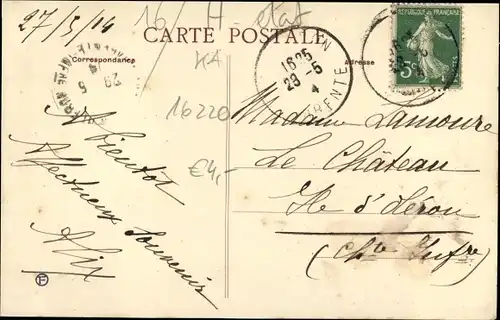 27/5/04
16 H-état
KA
CARTE POSTALE
Correspondance
Adresse
1625
28-5
4
RENTE
29
5
RÉPUBLIQUE FRANÇAISE
5c
POSTES
16220
€4,-
A Bientôt
Affectueux Souvenirs
Alix
Madame Lamoure
Le Château
Ile d'Oléron
(Chte Infre)
F